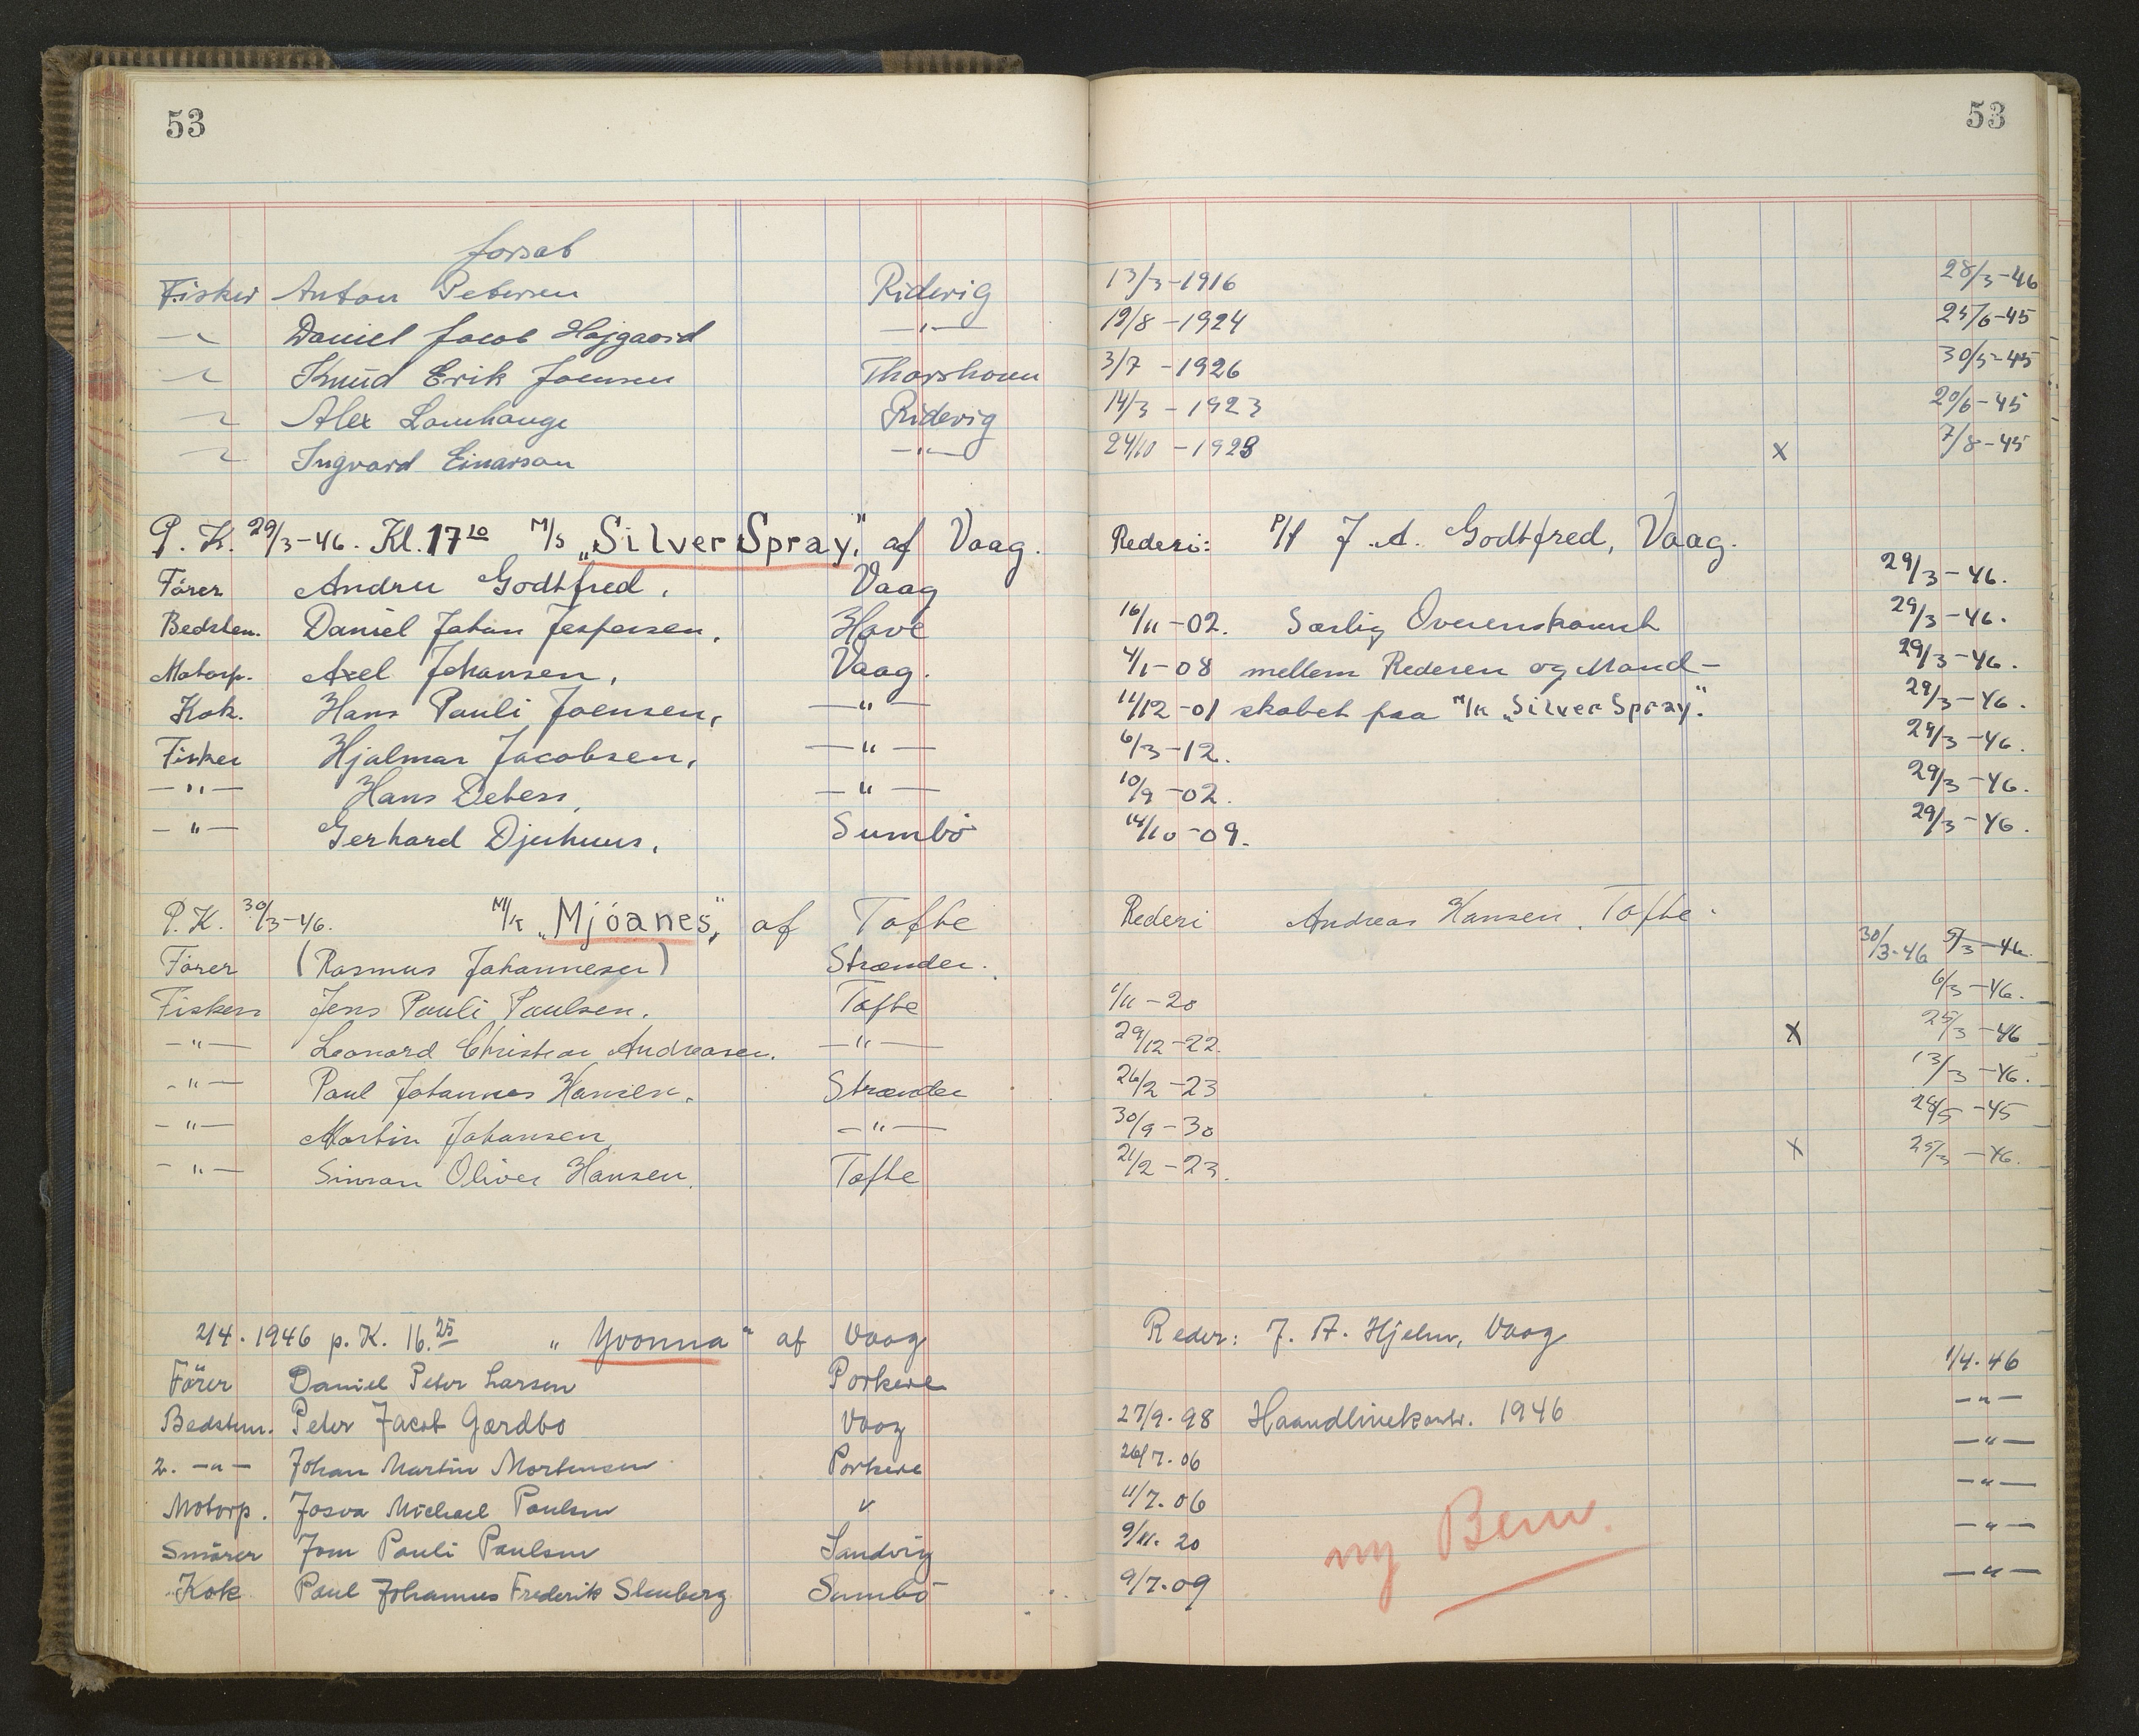 53 53
forsat
Fisker Anton Petersen Ridevig 13/3-1916 28/3-46
-〃- Daniel Jacob Højgaard -〃- 19/8-1924 25/6-45
-〃- Knud Erik Joensen Thorshavn 3/7-1926 30/5-45
-〃- Alex Lamhauge Ridevig 14/3-1923 20/6-45
-〃- Ingvard Einarson -〃- 24/10-1928 x 7/8-45
P. K. 29/3-46. Kl. 17 10 M/S „Silver Spray" af Vaag. Rederi: P/f J. A. Godtfred, Vaag.
Förer Andrew Godtfred, Vaag 29/3-46.
Bedstem. Daniel Johan Jespersen, Hove 16/11-02. Særlig Overenskomst 29/3-46.
Motorp. Axel Johansen, Vaag. 4/1-08 mellem Rederen og Mand- 29/3-46.
Kok. Hans Pauli Joensen, -〃- 11/12-01 skabet paa M/K „Silver Spray". 29/3-46.
Fisker Hjalmar Jacobsen, -〃- 6/3-12. 29/3-46.
-〃- Hans Debess, -〃- 10/9-02. 29/3-46.
-〃- Gerhard Djurhuus, Sumbö 14/10-09. 29/3-46.
P. K. 30/3-46. M/K „Mjóanes", af Tofte Rederi Andreas Hansen, Tofte.
Förer (Rasmus Johannesen) Strænder. 30/3-46 5/3-46.
Fiskere Jens Pauli Paulsen. Tofte 1/11-20 6/3-46.
-〃- Leonard Christian Andreasen. -〃- 29/12-22. x 25/3-46
-〃- Paul Johannes Hansen. Strænder 26/2-23 13/3-46.
-〃- Martin Johansen, -〃- 30/9-30 28/5-45
-〃- Simon Oliver Hansen. Tofte 21/2-23. x 25/3-46.
2/4. 1946 p. K. 16.25 „Yvonna" af Vaag Reder: J. A. Hjelm, Vaag
Förer Daniel Peter Larsen Porkere 1/4. 46
Bedstem. Peter Jacob Gærdbo Vaag 27/9. 98 Haandlinekontr. 1946 -〃-
2. -〃- Johan Martin Mortensen Porkere 26/7. 06 -〃-
Motorp. Josva Michael Poulsen 〃 11/7. 06 -〃-
Smörer Jom Pauli Poulsen Sandvig 9/11. 20 ny Bem. -〃-
Kok Paul Johannes Frederik Stenberg Sumbö 9/7. 09 -〃-